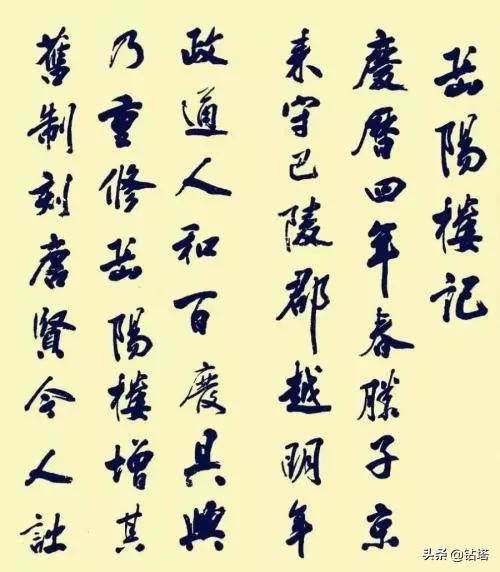 岳陽樓記
慶曆四年春滕子京
来守巴陵郡越明年
政通人和百廢具興
乃重修岳陽樓增其
舊制刻唐賢令人
头条 @钻塔